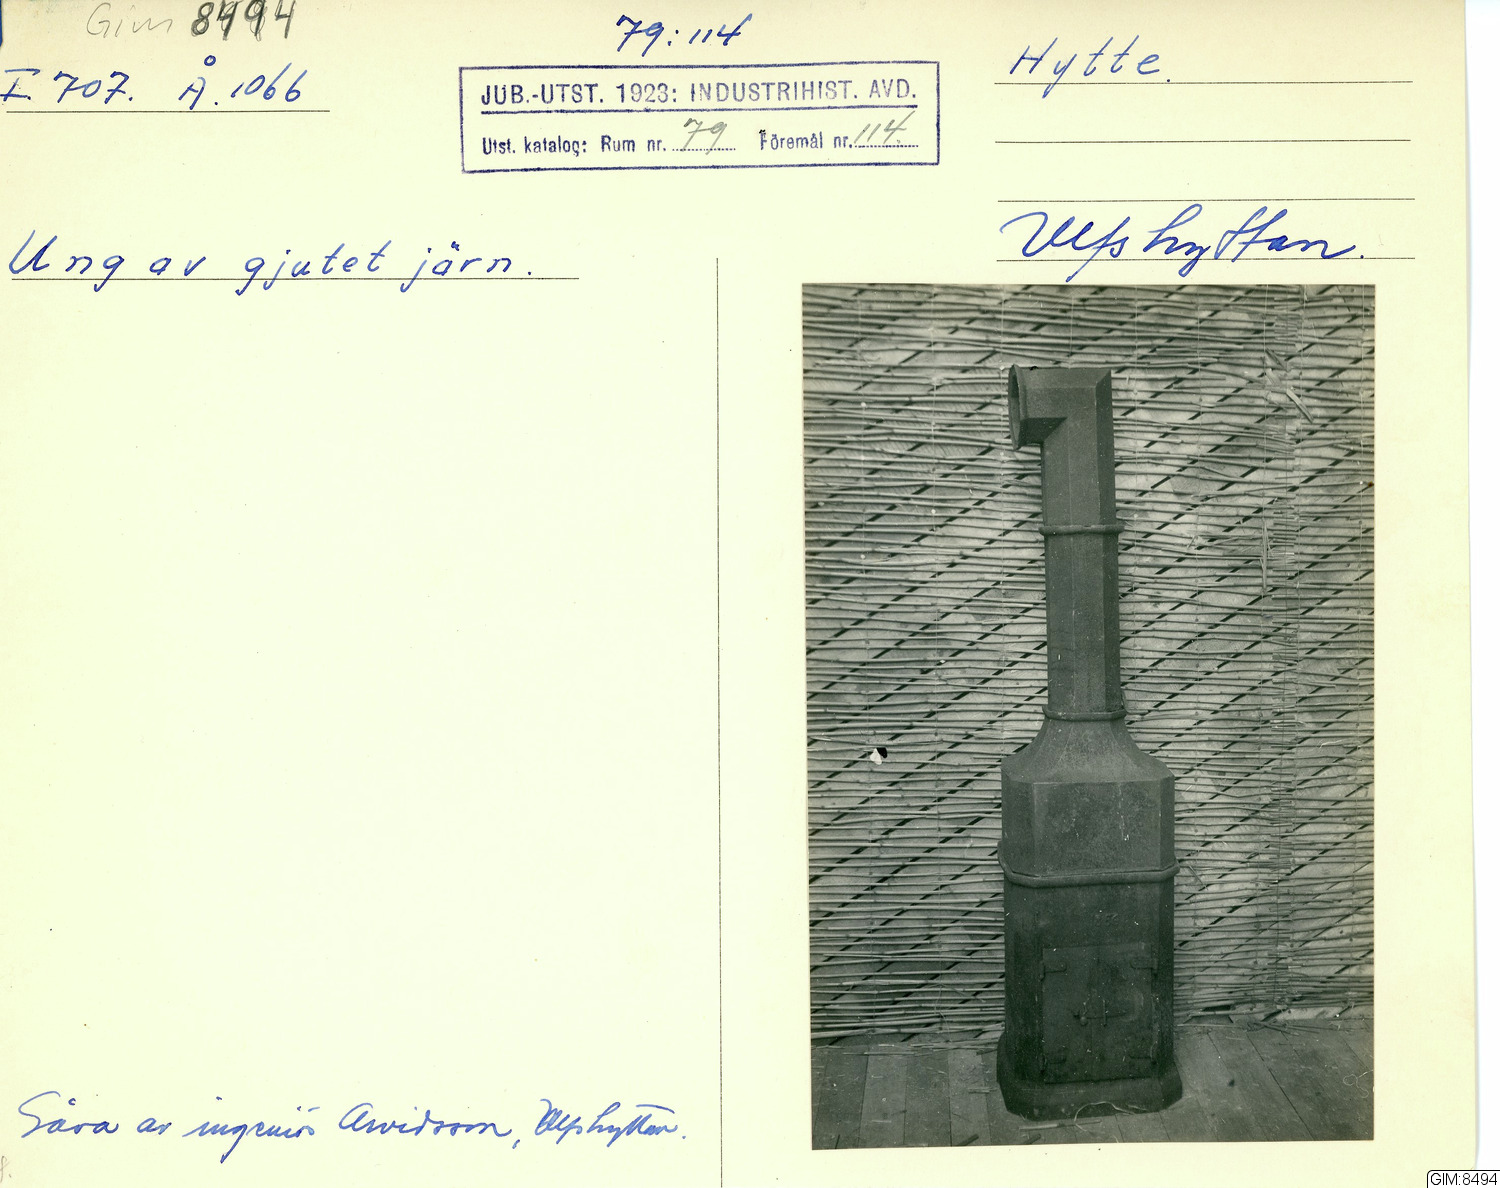 Gim 8494
79:114
I 707. Å. 1066
JUB.-UTST. 1923: INDUSTRIHIST. AVD.
Utst. katalog: Rum nr. 79 Föremål nr. 114.
Hytte.
Ulfshyttan.
Ung av gjutet järn.
Gåva av ingeniör Arvidsson, Ulfshyttan.
GIM:8494